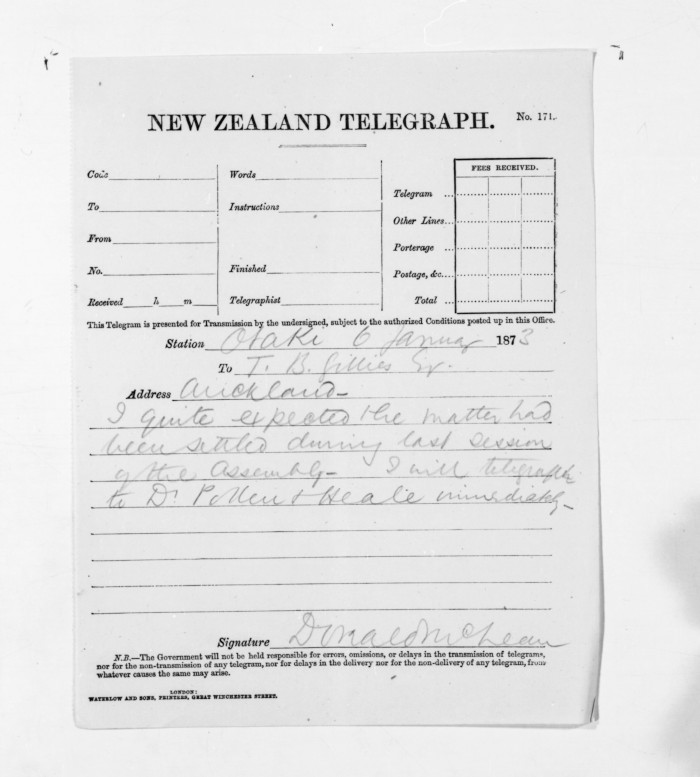 NEW ZEALAND TELEGRAPH. No. 171.
Code
Words
FEES RECEIVED.
Telegram ...
To
Instructions
Other Lines...
From
Porterage ...
No.
Finished
Postage, &c....
Received h m
Telegraphist
Total ...
This Telegram is presented for Transmission by the undersigned, subject to the authorized Conditions posted up in this Office.
Station Otaki 6 January 1873
To T. B. Gillies Esq.
Address Auckland-
I quite expected the matter had
been settled during last session
of the Assembly- I will telegraph
to Dr Pollen & Heale immediately-
Signature Donald McLean
N.B.—The Government will not be held responsible for errors, omissions, or delays in the transmission of telegrams,
nor for the non-transmission of any telegram, nor for delays in the delivery nor for the non-delivery of any telegram, from
whatever causes the same may arise.
LONDON:
WATERLOW AND SONS, PRINTERS, GREAT WINCHESTER STREET.